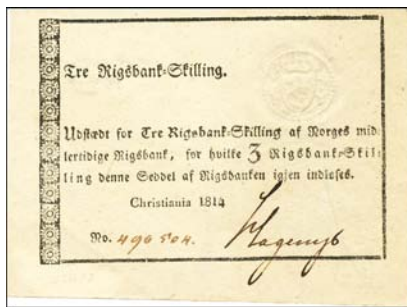 Tre Rigsbank-Skilling.
Udstædt for Tre Rigsbank-Skilling af Norges mid-
lertidige Rigsbank, for hvilke 3 Rigsbank-Skil-
ling denne Seddel af Rigsbanken igjen indløses.
Christiania 1814
No. 490504.